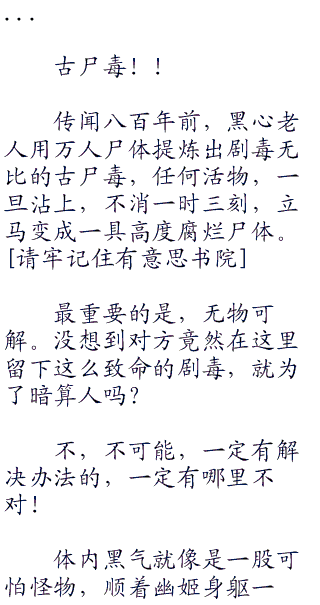 ...
古尸毒！！
传闻八百年前，黑心老
人用万人尸体提炼出剧毒无
比的古尸毒，任何活物，一
旦沾上，不消一时三刻，立
马变成一具高度腐烂尸体。
[请牢记住有意思书院]
最重要的是，无物可
解。没想到对方竟然在这里
留下这么致命的剧毒，就为
了暗算人吗？
不，不可能，一定有解
决办法的，一定有哪里不
对！
体内黑气就像是一股可
怕怪物，顺着幽姬身躯一